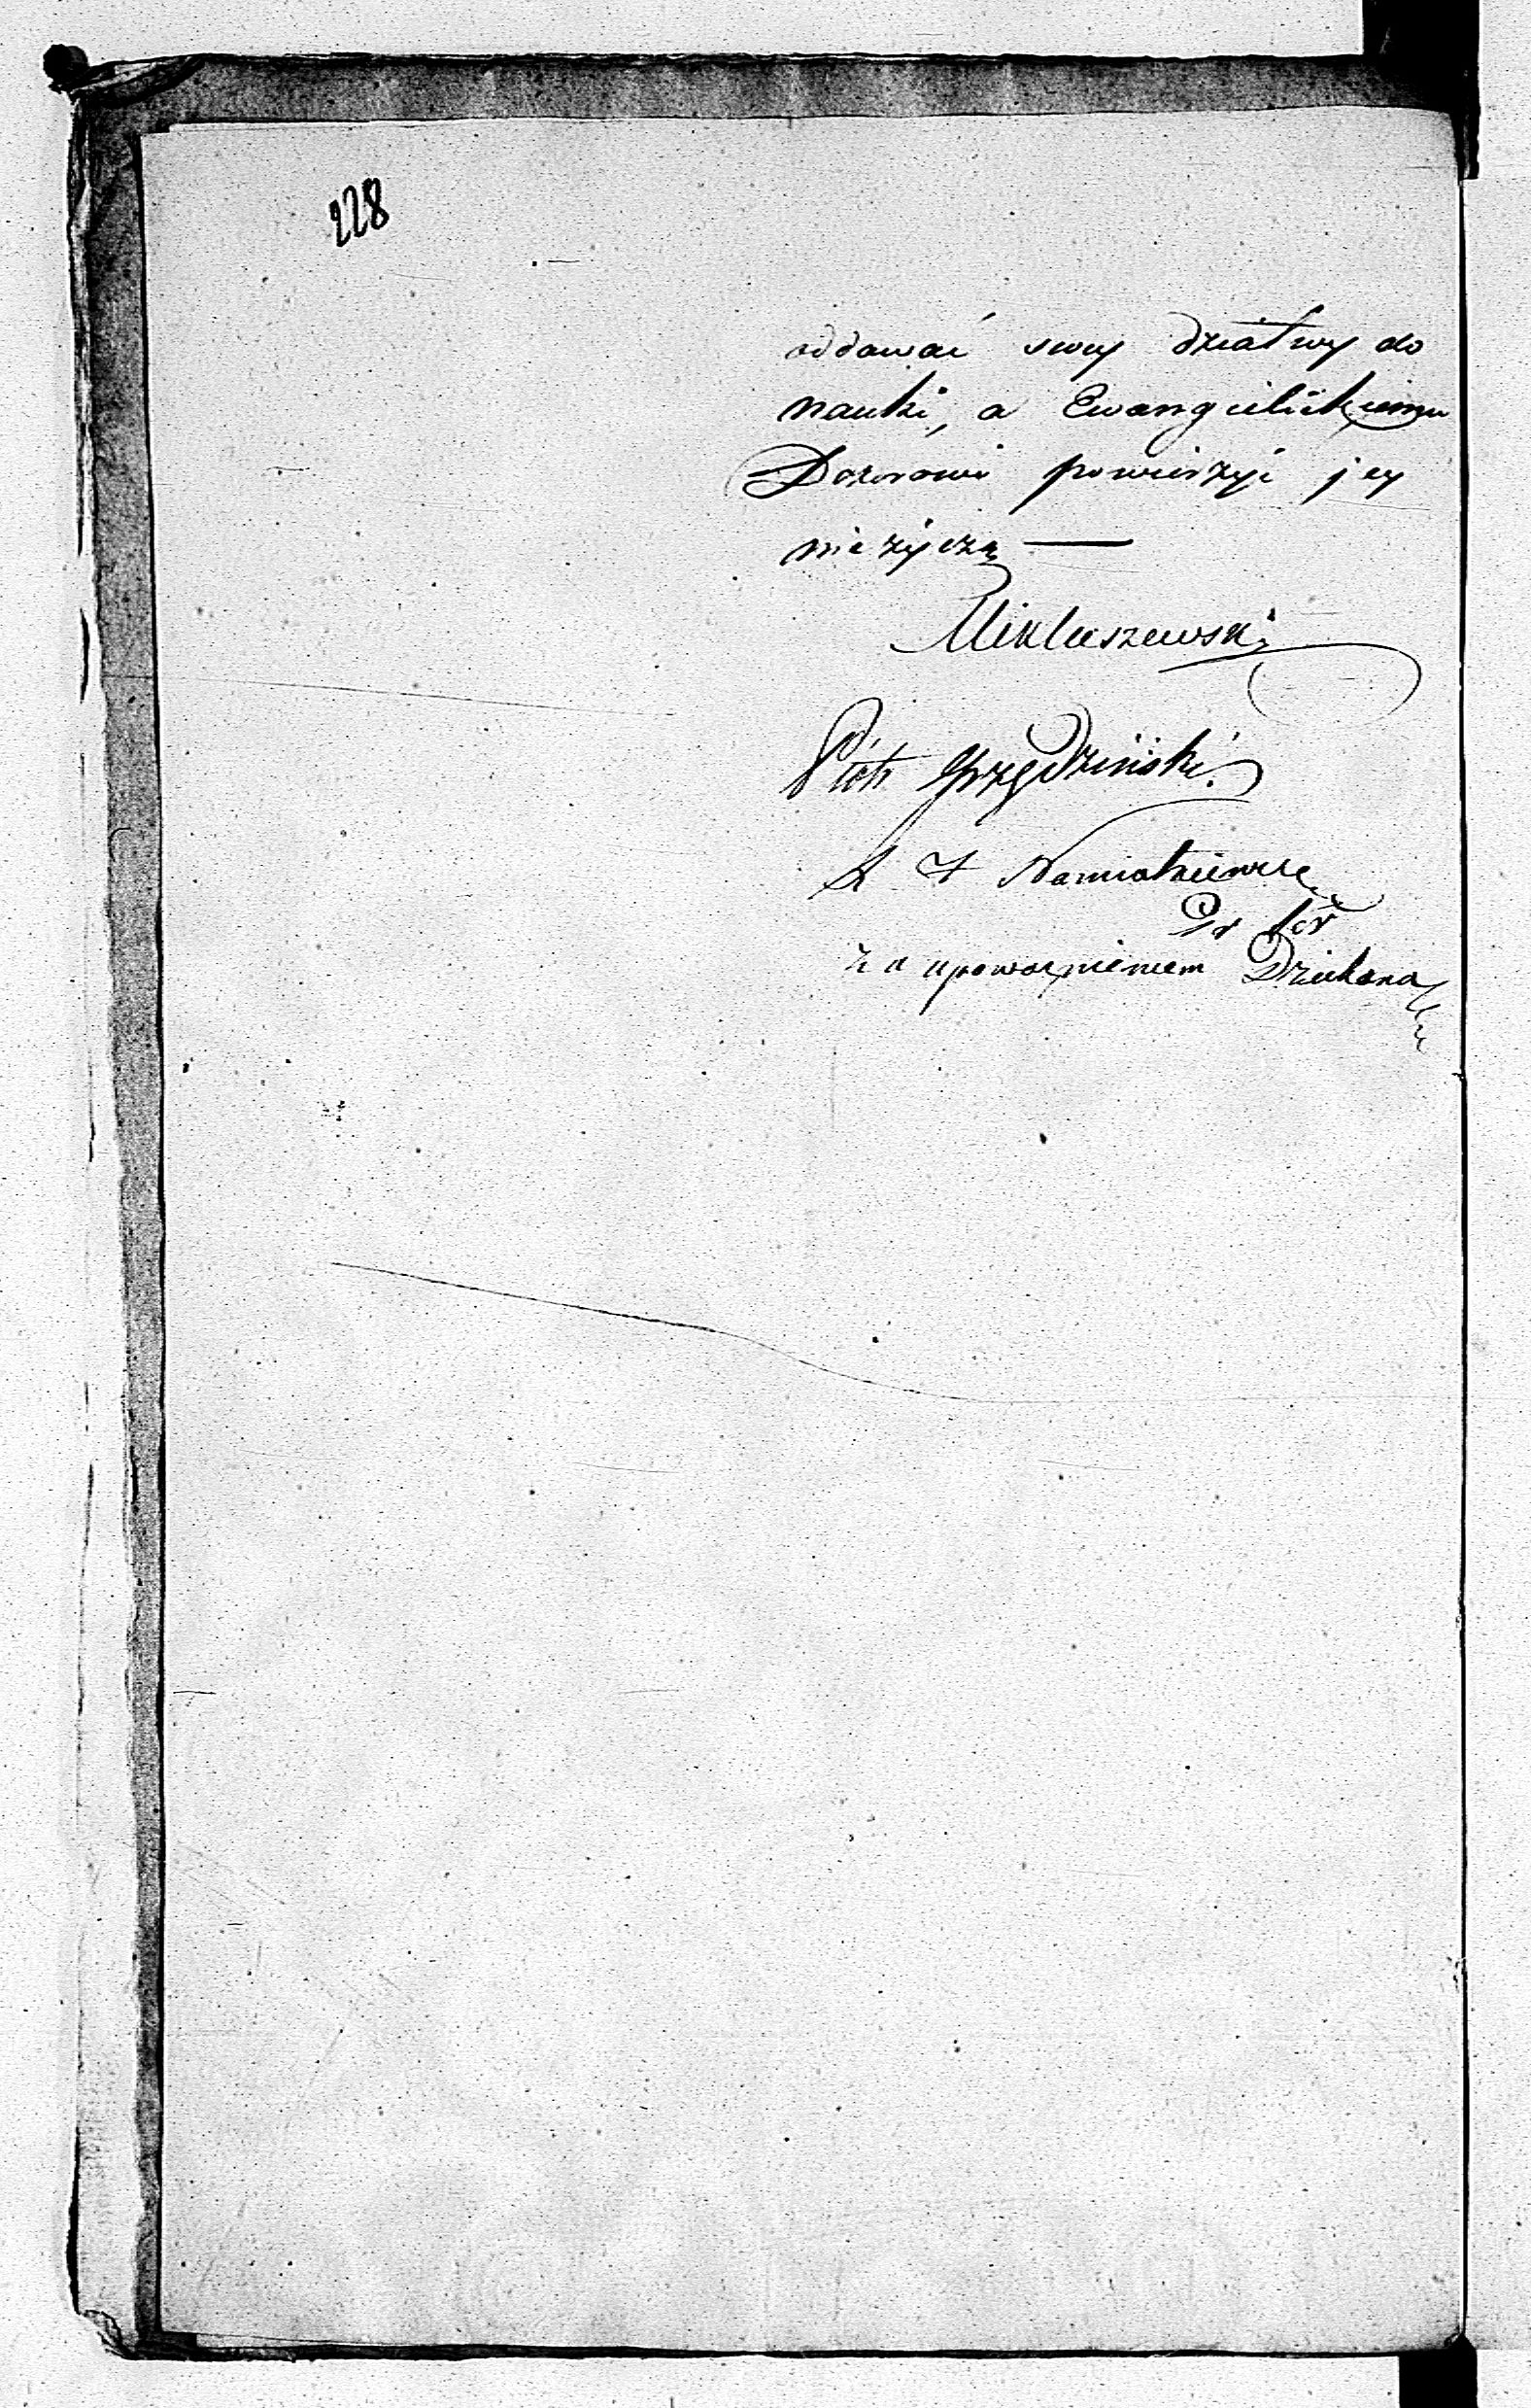 228
oddawać swey dziatwy do
nauki, a Ewangielickiemu
Dozorowi powierzyć jey
nie życzą —
Mikluszewski
Piotr Grzędziński
X J Namiotkiewicz
za upoważnieniem Dziekana